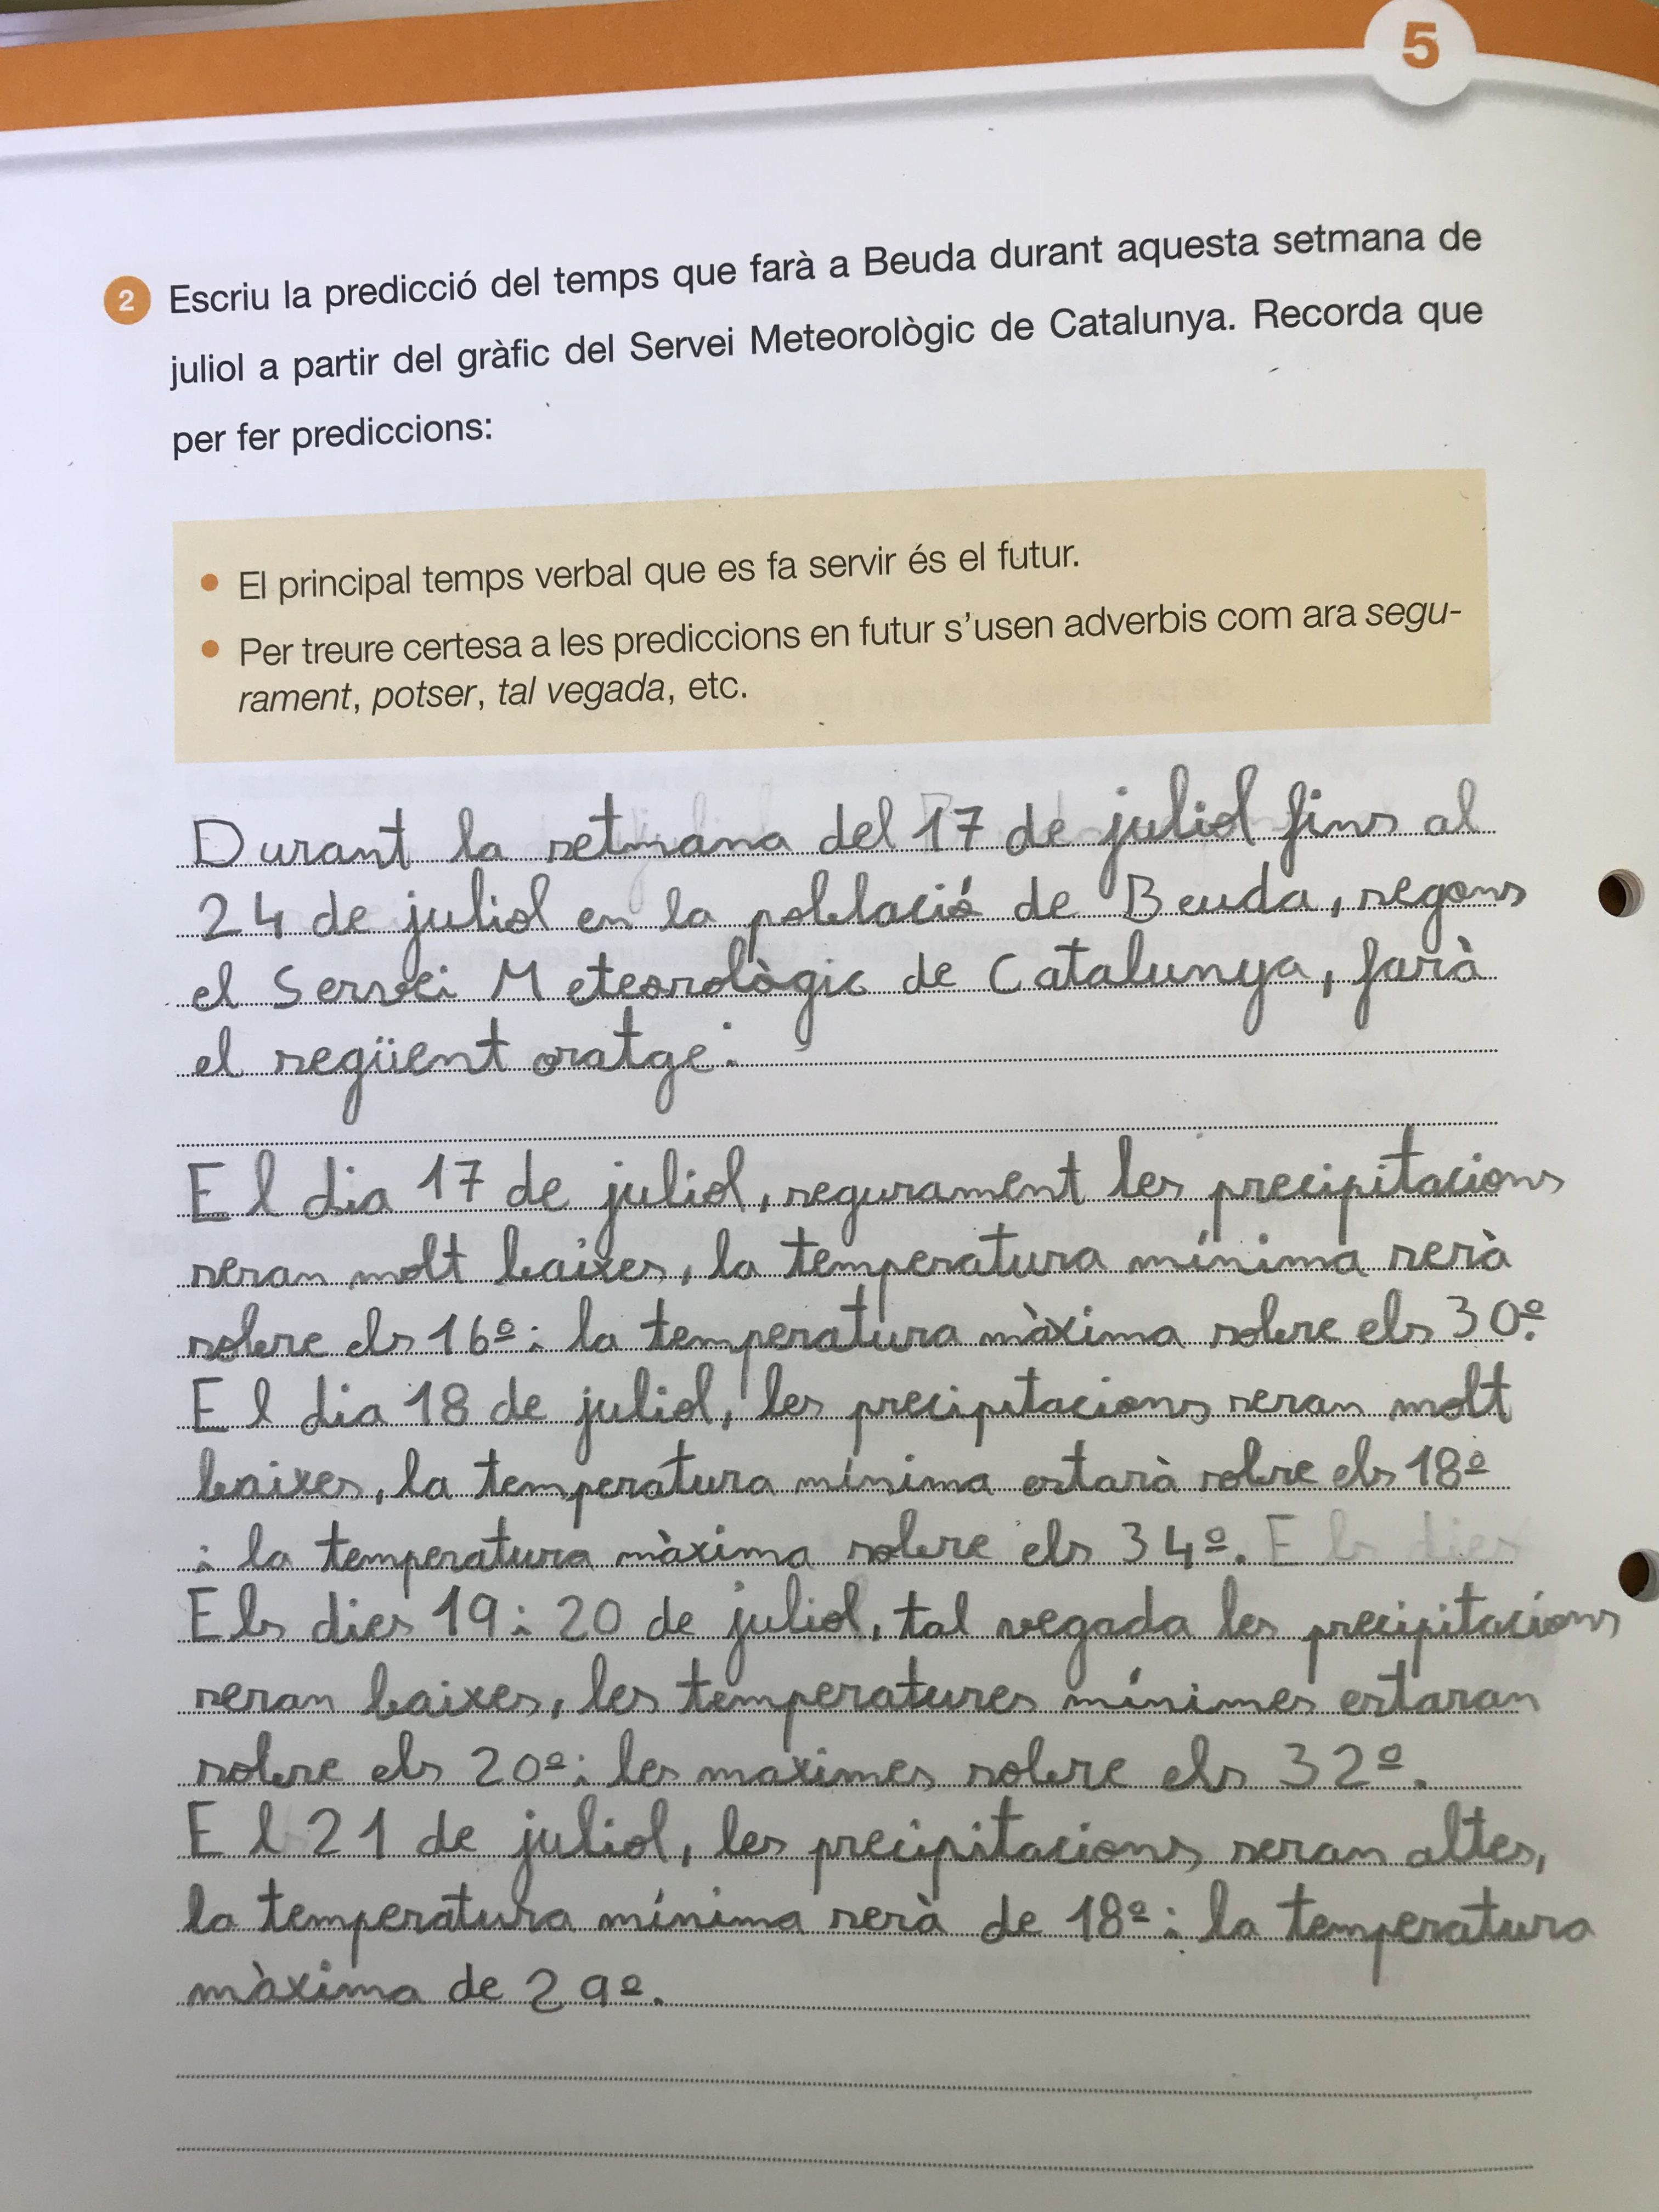 5
2 Escriu la predicció del temps que farà a Beuda durant aquesta setmana de
juliol a partir del gràfic del Servei Meteorològic de Catalunya. Recorda que
per fer prediccions:
• El principal temps verbal que es fa servir és el futur.
• Per treure certesa a les prediccions en futur s'usen adverbis com ara segu-
rament, potser, tal vegada, etc.
Durant la setmana del 17 de juliol fins al
24 de juliol en la població de Beuda, segons
el Servei Meteorològic de Catalunya, farà
el següent oratge:
El dia 17 de juliol, segurament les precipitacions
seran molt baixes, la temperatura mínima serà
sobre els 16º i la temperatura màxima sobre els 30º.
El dia 18 de juliol, les precipitacions seran molt
baixes, la temperatura mínima estarà sobre els 18º
i la temperatura màxima sobre els 34º. Els dies
Els dies 19 i 20 de juliol, tal vegada les precipitacions
seran baixes, les temperatures mínimes estaran
sobre els 20º i les maximes sobre els 32º.
El 21 de juliol, les precipitacions seran altes,
la temperatura mínima serà de 18º i la temperatura
màxima de 29º.